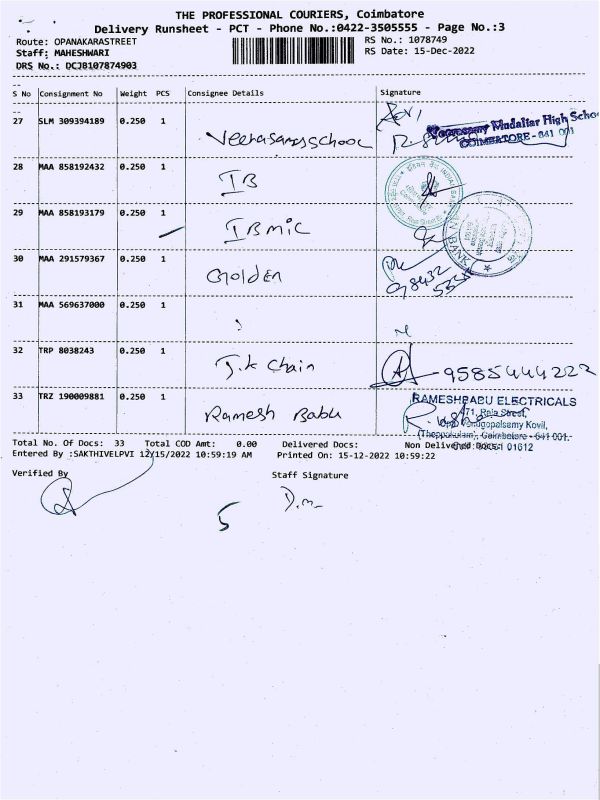 THE PROFESSIONAL COURIERS, Coimbatore
Delivery Runsheet - PCT - Phone No.:0422-3505555 - Page No.:3
Route: OPANAKARASTREET RS No.: 1078749
Staff: MAHESHWARI RS Date: 15-Dec-2022
DRS No.: DCJ8107874903
S No Consignment No Weight PCS Consignee Details Signature
27 SLM 309394189 0.250 1
Veerasamyschool
Mudaliar High School
COIMBATORE - 641 001
28 MAA 858192432 0.250 1
IB
29 MAA 858193179 0.250 1
IBMIC
BANK
30 MAA 291579367 0.250 1
Golden
98432
31 MAA 569637000 0.250 1
32 TRP 8038243 0.250 1
J.K Chain
9585444222
33 TRZ 190009881 0.250 1
Ramesh Babu
RAMESHBABU ELECTRICALS
471, Raja Street,
Venugopalsamy Kovil,
(Theppakulam), Coimbatore - 641 001.
Total No. Of Docs: 33 Total COD Amt: 0.00 Delivered Docs: Non Delivered Docs:
01612
Entered By :SAKTHIVELPVI 12/15/2022 10:59:19 AM Printed On: 15-12-2022 10:59:22
Verified By Staff Signature
D.m
5